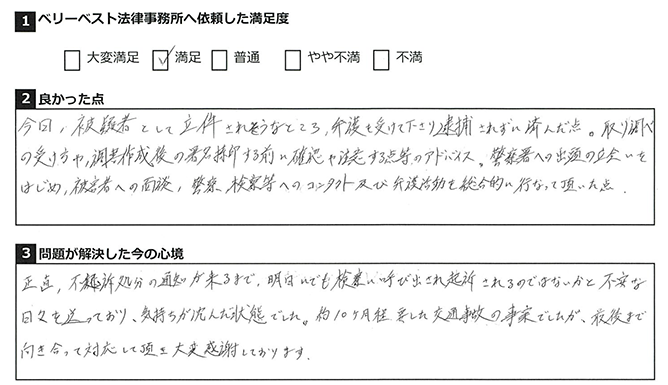 1 ベリーベスト法律事務所へ依頼した満足度
大変満足 満足 普通 やや不満 不満
2 良かった点
今回、被疑者として立件されそうなところ、弁護を受けて下さり逮捕されずに済んだ点。取り調べ
の受け方や、調書作成後の署名捺印する前に確認や注意する点等のアドバイス。警察署への出頭の立会いを
はじめ、被害者への面談、警察、検察等へのコンタクト及び弁護活動を総合的に行なって頂いた点。
3 問題が解決した今の心境
正直、不起訴処分の通知が来るまで、明日にでも検察に呼び出され起訴されるのではないかと不安な
日々を送っており、気持ちが沈んだ状態でした。約10ヶ月程要した交通事故の事案でしたが、最後まで
向き合って対応して頂き大変感謝しております。